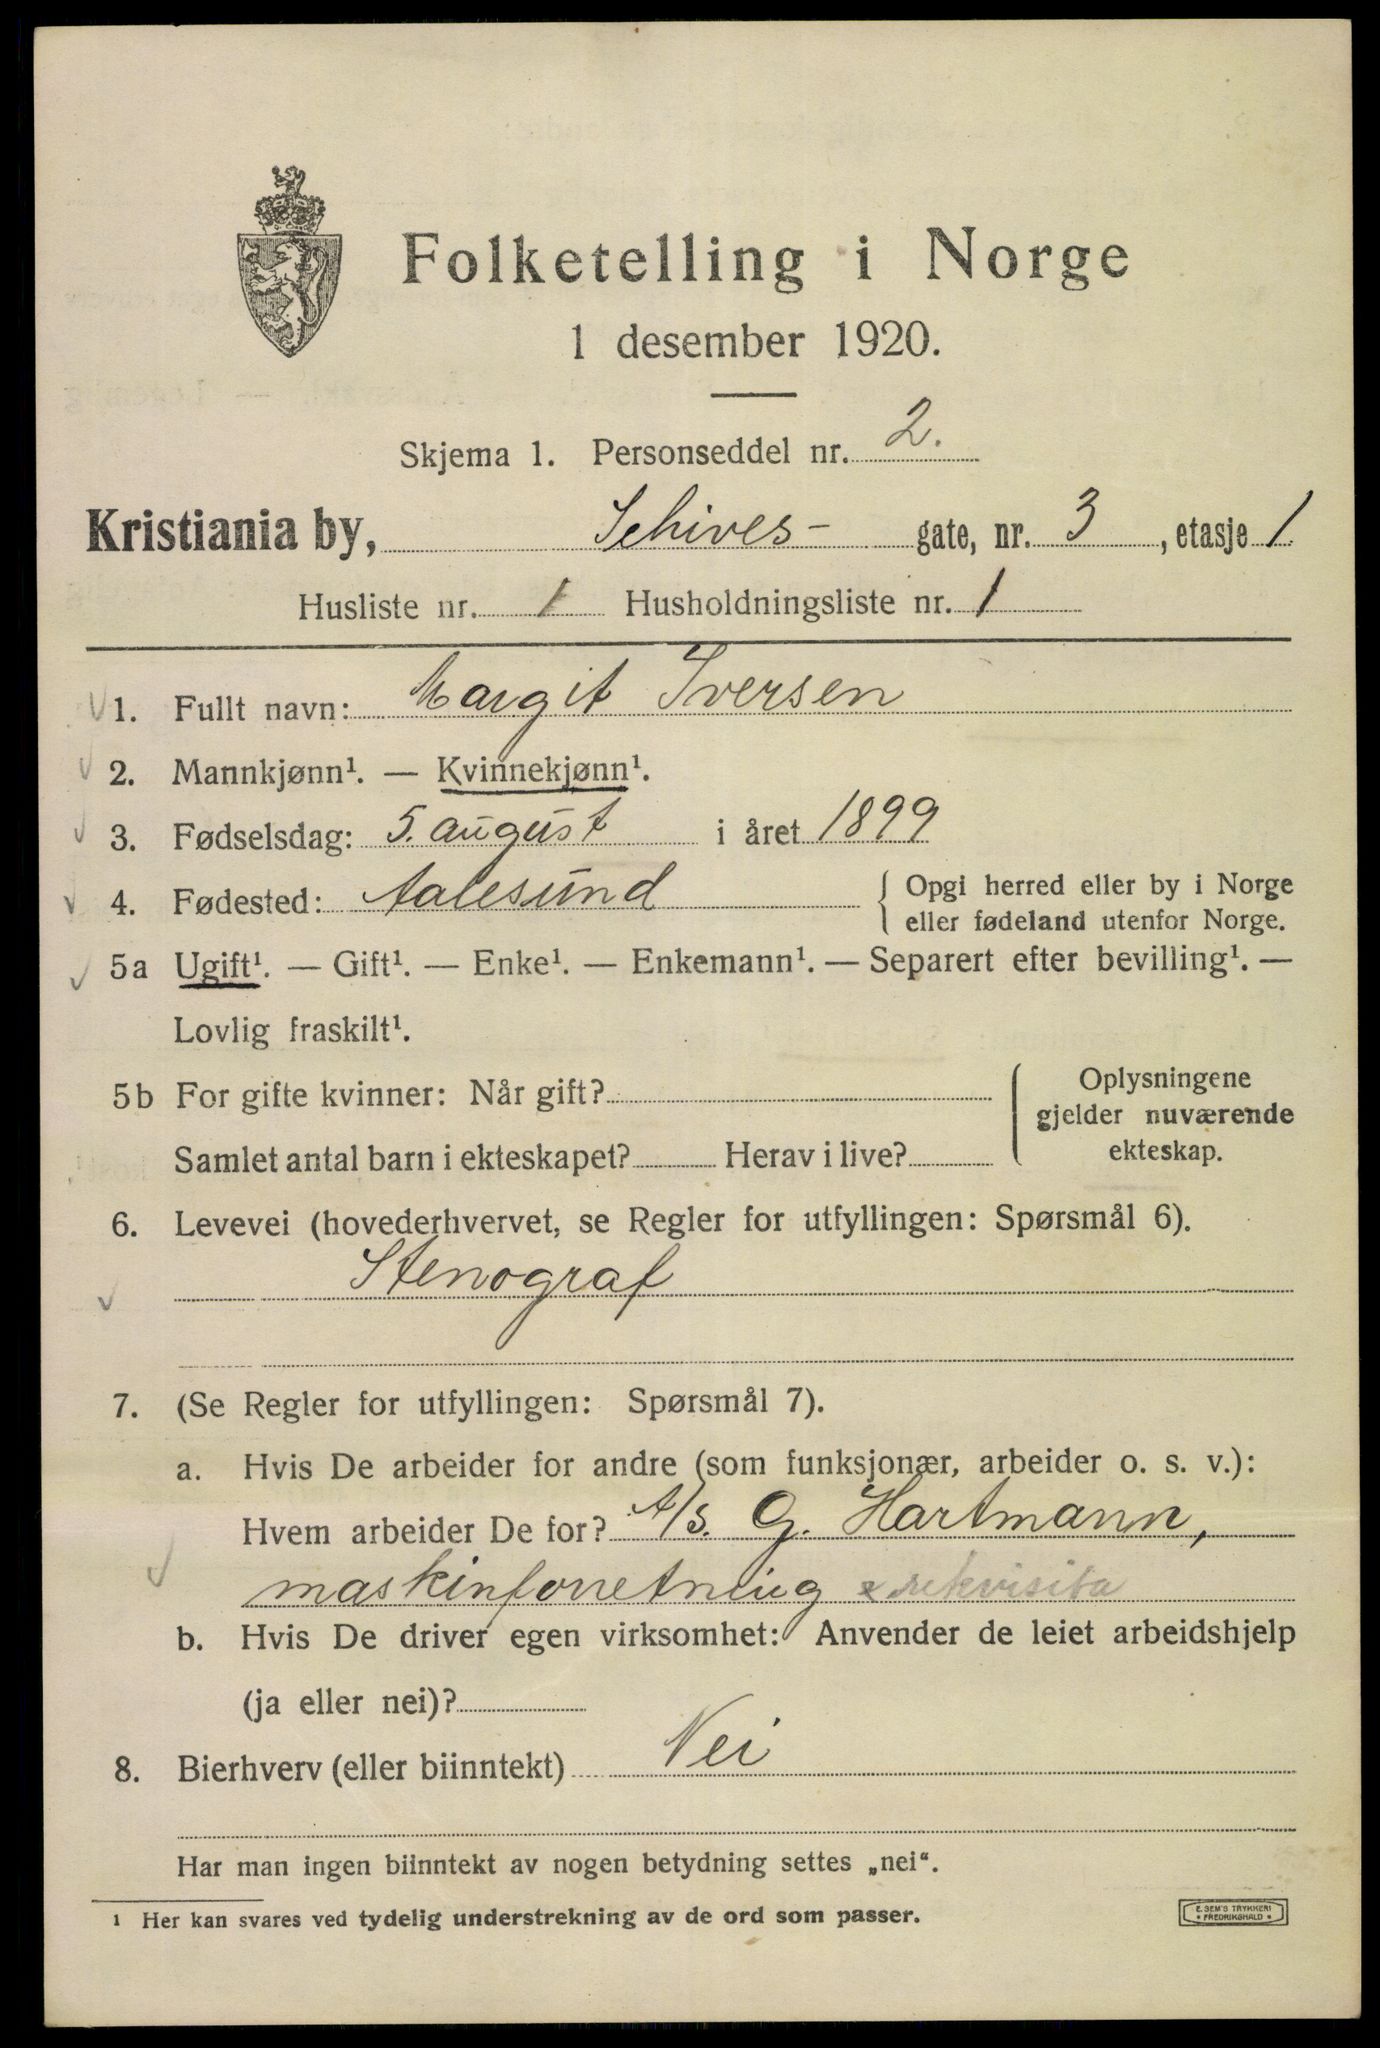 Folketelling i Norge
1 desember 1920.
Skjema 1. Personseddel nr. 2.
Kristiania by, Schives- gate, nr. 3, etasje 1
Husliste nr. 1 Husholdningsliste nr. 1
1. Fullt navn: Margit Iversen
2. Mannkjønn¹. — Kvinnekjønn¹.
3. Fødselsdag: 5. august i året 1899
4. Fødested: Aalesund { Opgi herred eller by i Norge
eller fødeland utenfor Norge.
5a Ugift¹. — Gift¹. — Enke¹. — Enkemann¹. — Separert efter bevilling¹. —
Lovlig fraskilt¹.
5b For gifte kvinner: Når gift?
Samlet antal barn i ekteskapet? Herav i live?
Oplysningene
gjelder nuværende
ekteskap.
6. Levevei (hovederhvervet, se Regler for utfyllingen: Spørsmål 6).
Stenograf
7. (Se Regler for utfyllingen: Spørsmål 7).
a. Hvis De arbeider for andre (som funksjonær, arbeider o. s. v.):
Hvem arbeider De for? A/s. G. Hartmann,
maskinforretning & rekvisita
b. Hvis De driver egen virksomhet: Anvender de leiet arbeidshjelp
(ja eller nei)?
8. Bierhverv (eller biinntekt) Nei
Har man ingen biinntekt av nogen betydning settes „nei“.
¹ Her kan svares ved tydelig understrekning av de ord som passer.
E. SEM'S TRYKKERI
• FREDRIKSHALD •